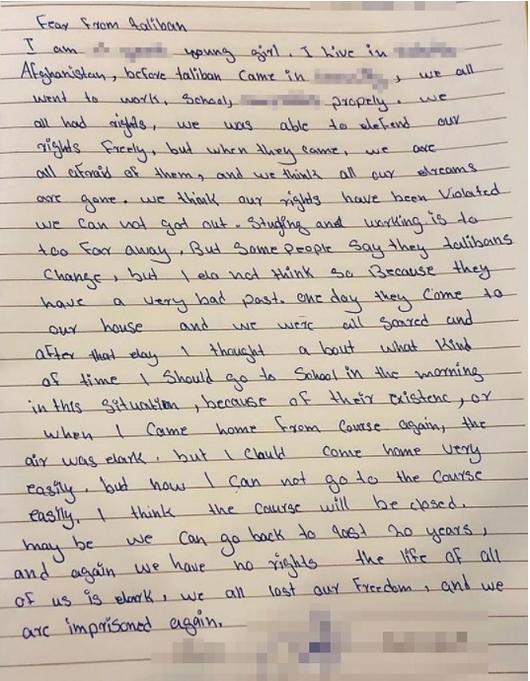 Fear From taliban
I am young girl. I live in
Afghanistan, before taliban came in , we all
went to work, School, propely. we
all had rights, we was able to defend our
rights freely, but when they came, we are
all afraid of them, and we think all our dreams
are gone. we think our rights have been Violated
we can not got out. Studing and working is to
too far away, But Some people say they talibans
Change, but I do not think so Because they
have a very bad past. one day they come to
our house and we were all scared and
after that day I thought a bout what kind
of time I Should go to School in the morning
in this Situation, because of their existenc, or
when I came home from Course again, the
air was dark. but I Could come home very
easily. but now I can not go to the Course
easily. I think the Course will be closed.
may be we can go back to last 20 years,
and again we have no rights the life of all
of us is dark, we all lost our Freedom, and we
are imprisoned again.